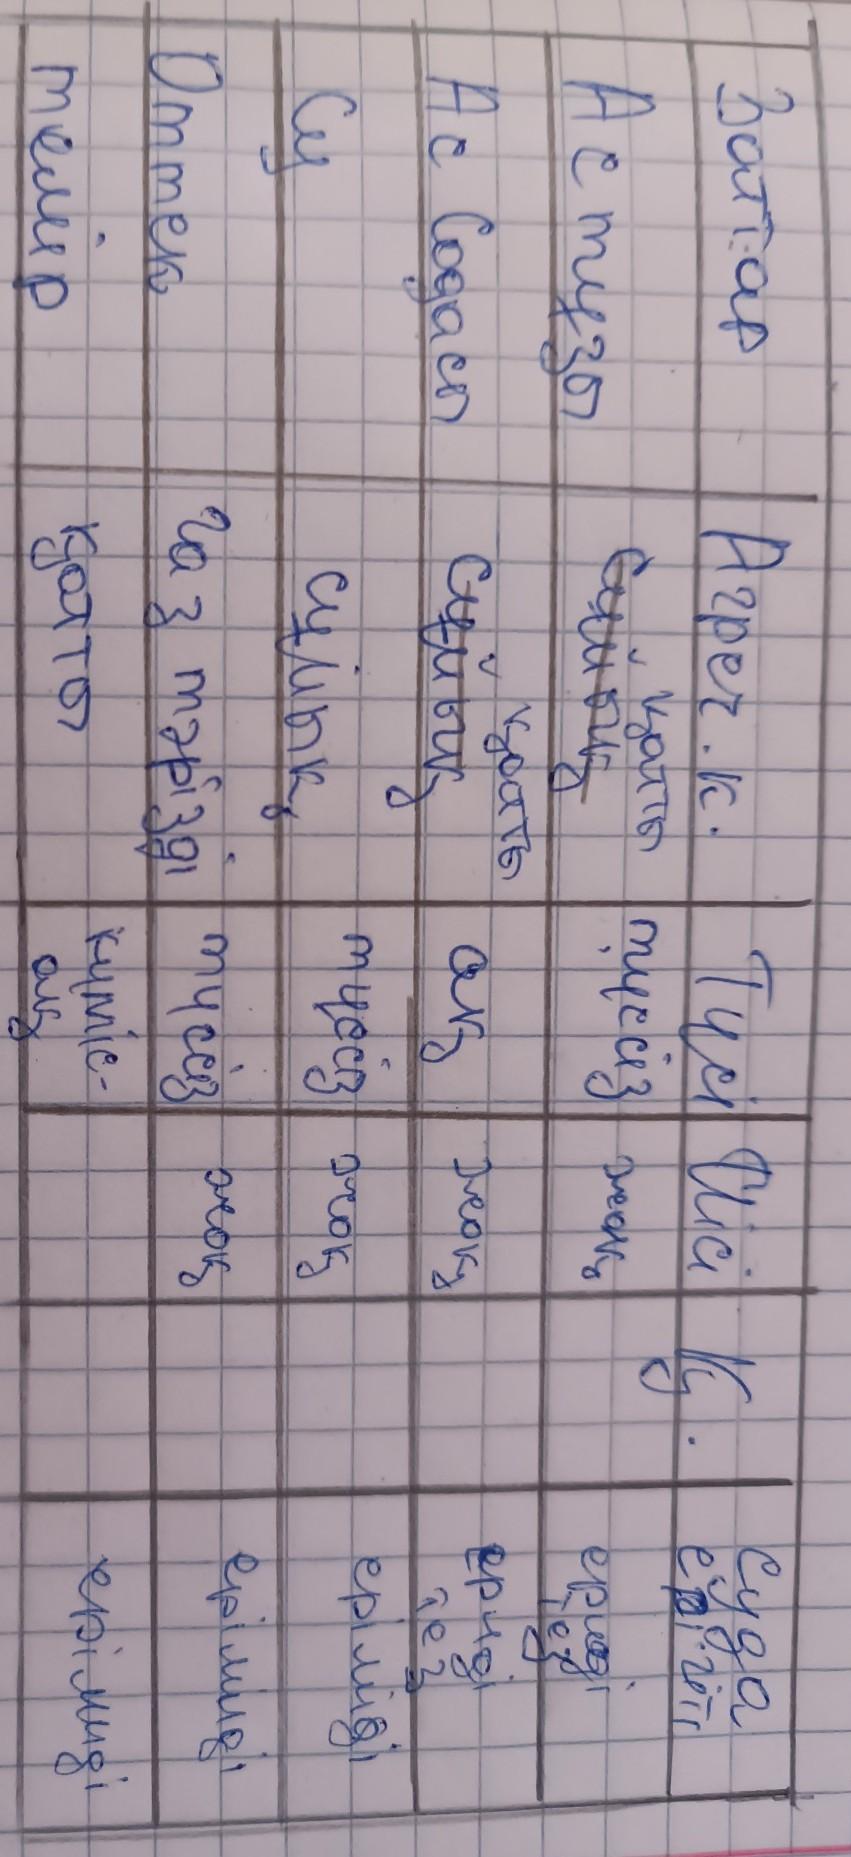 Заттар Агрег.к. Түсі Иісі Қ. Суда ерігіті
Ас тұзы сұйық қатты түссіз жоқ ериді тез
Ас Содасы Сұйық қатты ақ жоқ ериді тез
Су сұйық түссіз жоқ ерімиді
Оттек газ тәрізді түссіз жоқ ерімиді
темір қатты күміс-ақ ерімиді